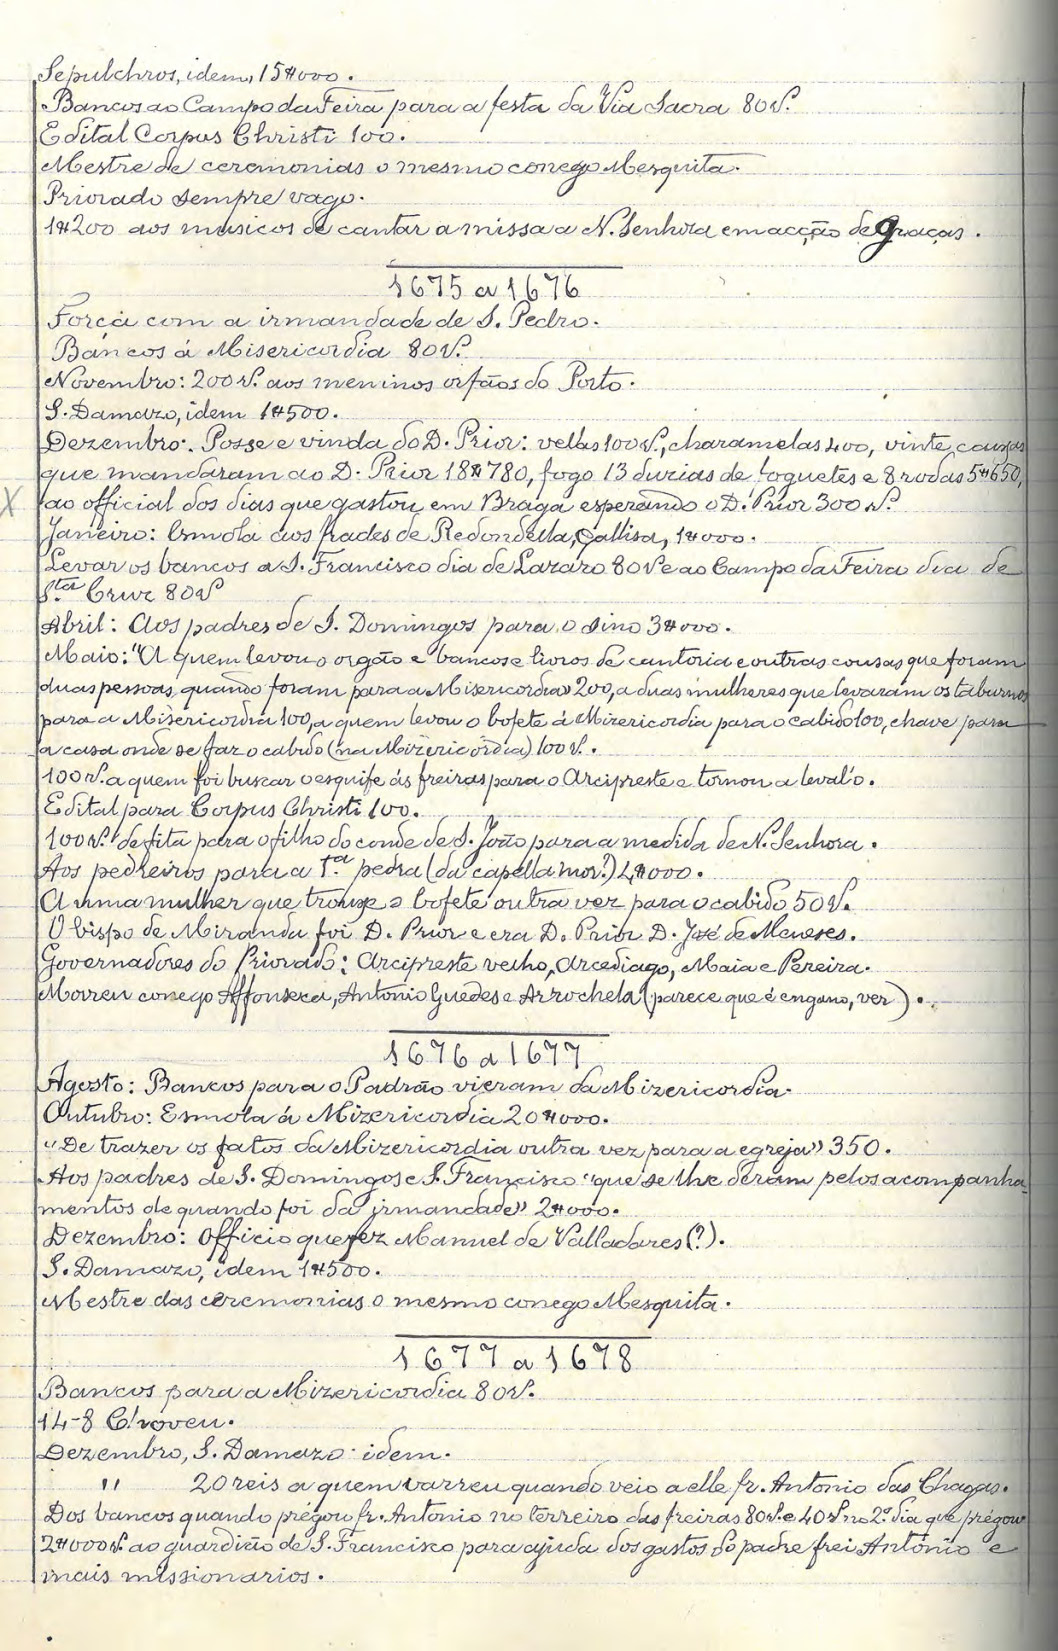 Sepulchros, idem, 15$000.
Bancos ao Campo da Feira para a festa da Via Sacra 80 rs.
Edital Corpus Christi 100.
Mestre de ceremonias o mesmo conego Mesquita.
Priorado sempre vago.
1$200 aos musicos de cantar a missa a N. Senhora em acção de graças.
1675 a 1676
Forca com a irmandade de S. Pedro.
Bancos á Misericordia 80 rs.
Novembro: 200 rs. aos meninos orfãos do Porto.
S. Damazo, idem 1$500.
Dezembro: Posse e vinda do D. Prior: vellas 100 rs., charamelas 400, vinte caixas
que mandaram ao D. Prior 18$780, fogo 13 duzias de foguetes e 8 rodas 5$650,
ao official dos dias que gastou em Braga esperando o D. Prior 300 rs.
Janeiro: Esmola aos frades de Redondella, Gallisa, 1$000.
Levar os bancos a S. Francisco dia de Lazaro 80 rs e ao Campo da Feira dia de
Sta Cruz 80 rs
Abril: Aos padres de S. Domingos para o sino 3$000.
Maio: "A quem levou o orgão e bancos e livros de cantoria e outras cousas que foram
duas pessoas, quando foram para a Misericordia" 200, a duas mulheres que levaram os taburnos
para a Misericordia 100, a quem levou o bofete á Mizericordia para o cabido 100, chave para
a casa onde se faz o cabido (na Mizericordia) 100 rs.
100 rs. a quem foi buscar o esquife ás freiras para o Arcipreste e tornou a leval'o.
Edital para Corpus Christi 100.
100 rs. de fita para o filho do conde de S. João para a medida de N. Senhora.
Aos pedreiros para a 1.ª pedra (da capella mór?) 4$000.
A uma mulher que trouxe o bofete outra vez para o cabido 50 rs.
O bispo de Miranda foi D. Prior e era D. Prior D. José de Meneses.
Governadores do Priorado: Arcipreste velho, Arcediago, Maia e Pereira.
Morreu conego Affonseca, Antonio Guedes e Arrochela (parece que é engano, ver).
1676 a 1677
Agosto: Bancos para o Padrão vieram da Mizericordia.
Outubro: Esmola á Mizericordia 20$000.
"De trazer os fatos da Mizericordia outra vez para a egreja" 350.
Aos padres de S. Domingos e S. Francisco "que se lhe deram pelos acompanha-
mentos de quando foi da irmandade" 2$000.
Dezembro: Officio que fez Manuel de Valladares (?).
S. Damazo, idem 1$500.
Mestre das ceremonias o mesmo conego Mesquita.
1677 a 1678
Bancos para a Mizericordia 80 rs.
14-8 Choveu.
Dezembro, S. Damazo idem.
" 20 reis a quem varreu quando veio a elle fr. Antonio das Chagas.
Dos bancos quando prégou fr. Antonio no terreiro das freiras 80 rs. e 40 rs no 2.º dia que prégou
2$000 rs. ao guardião de S. Francisco para ajuda dos gastos do padre frei Antonio e
mais missionarios.